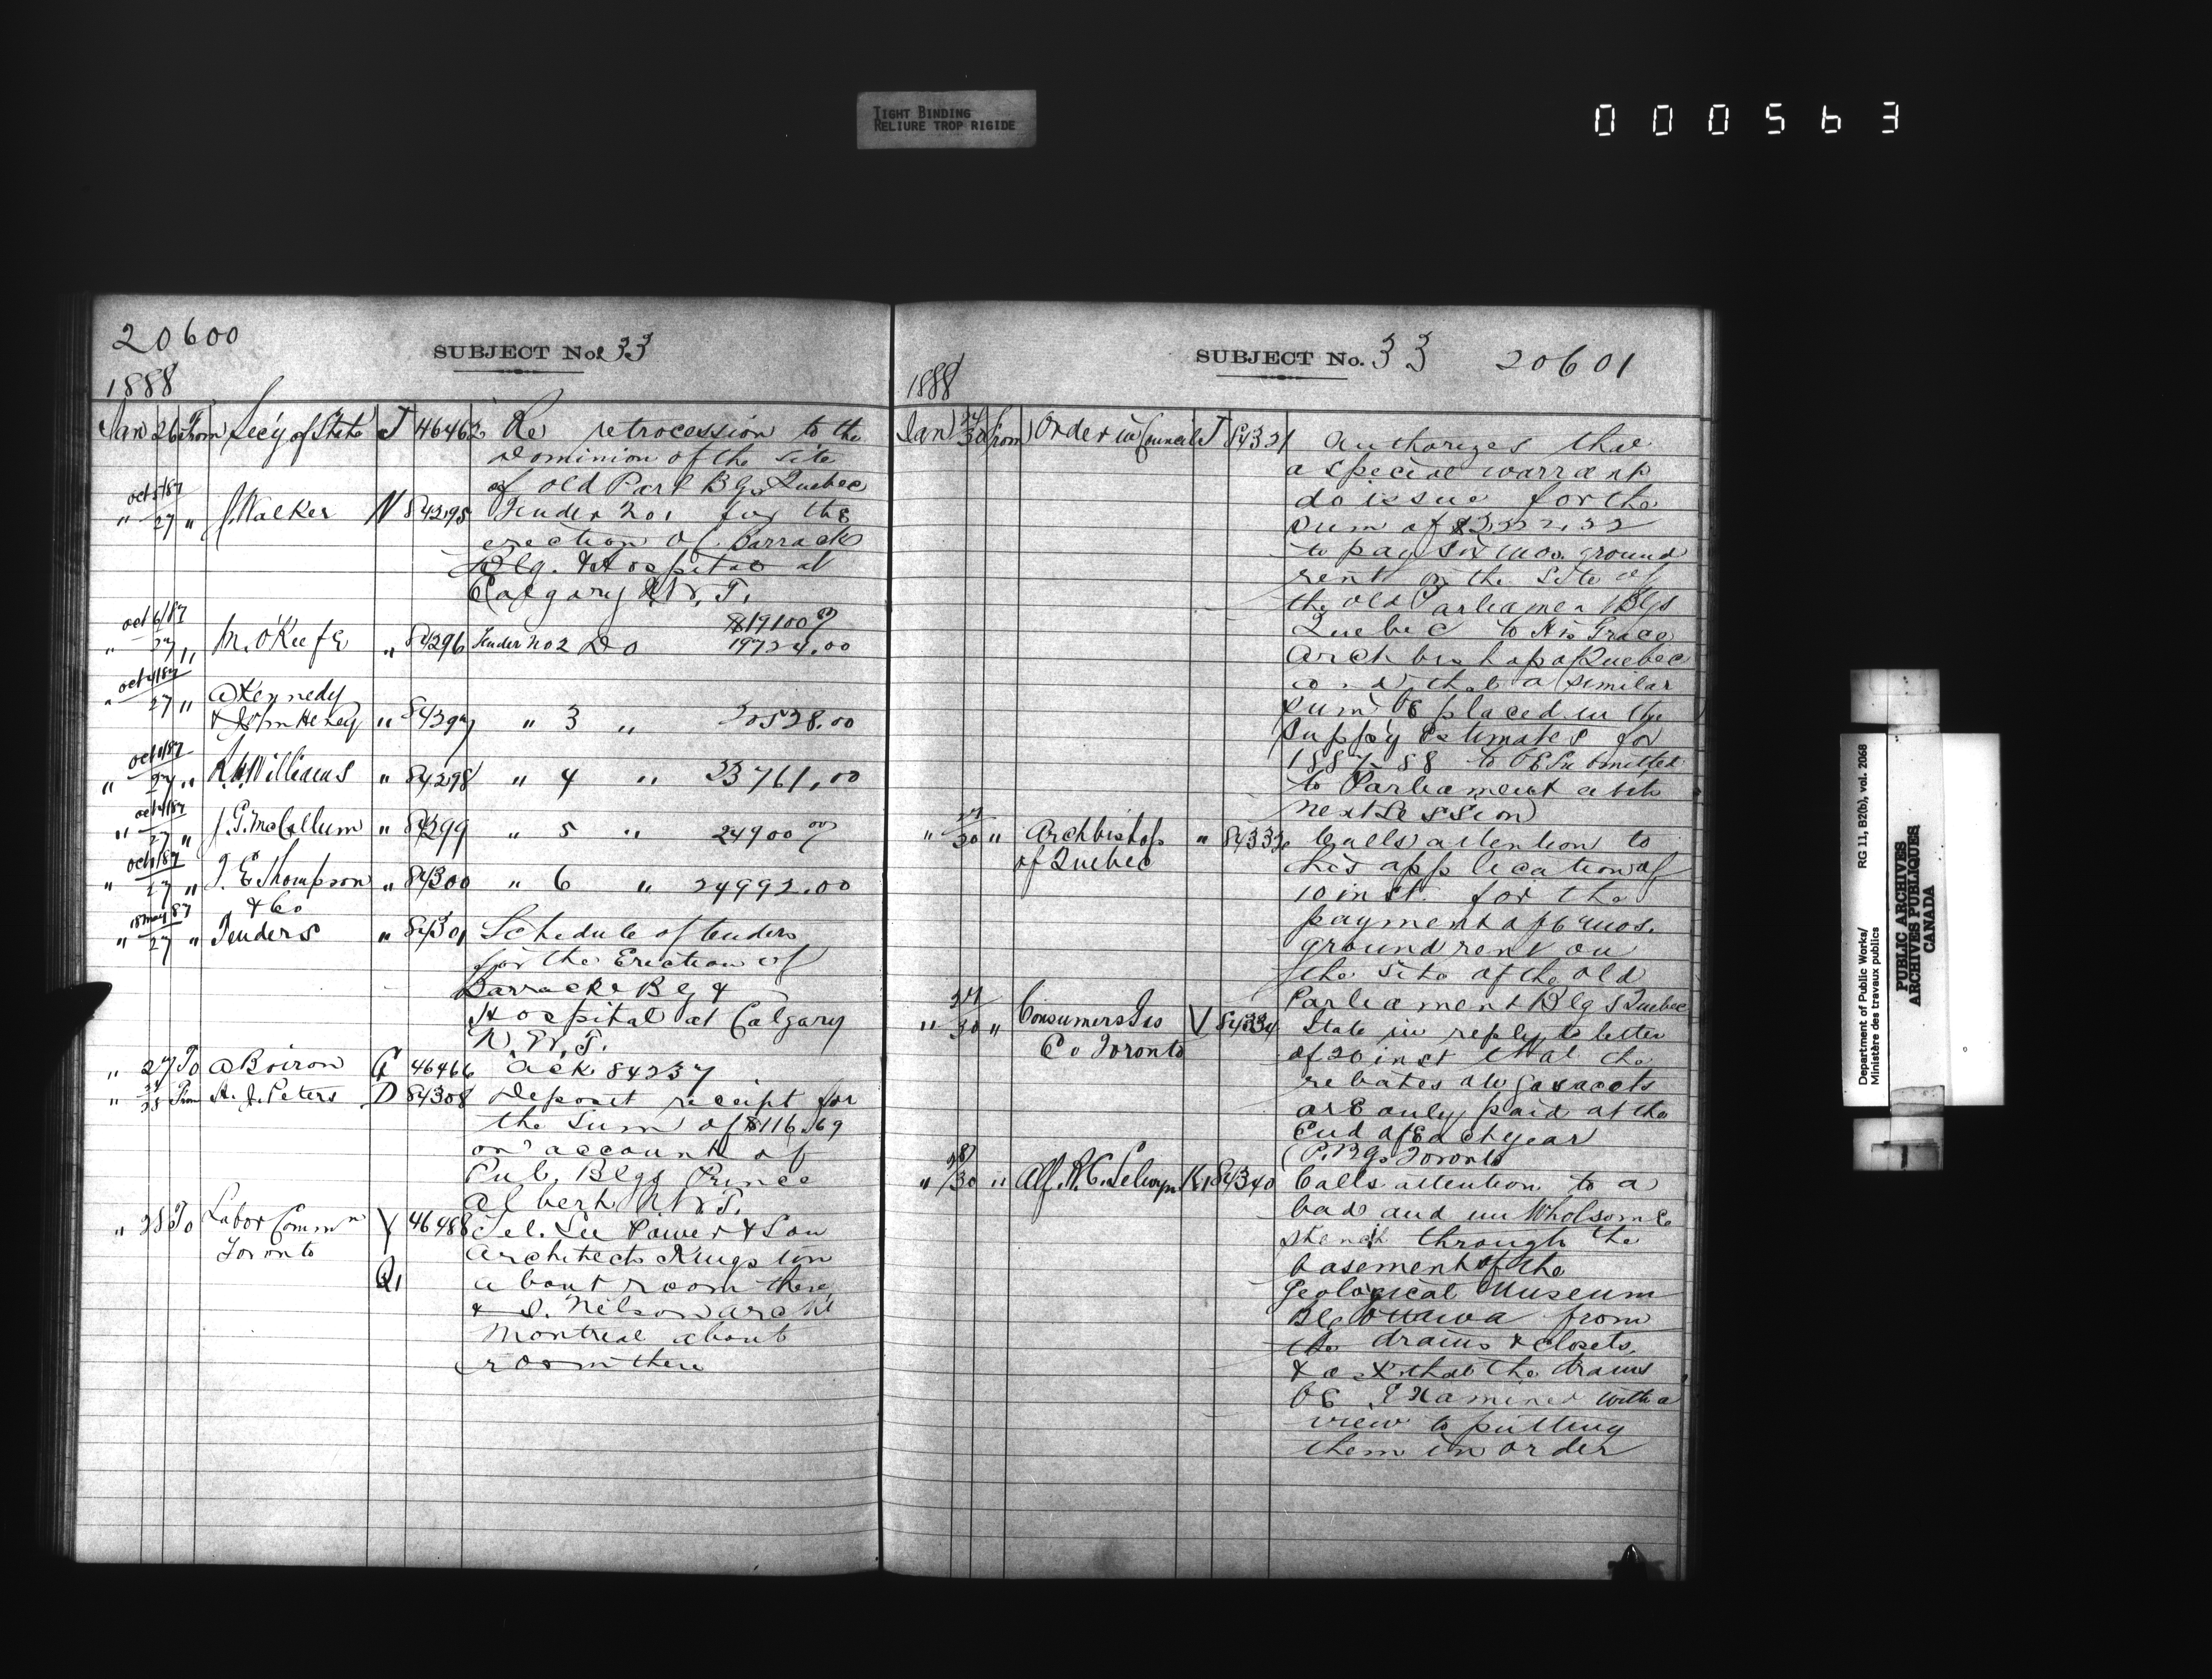 TIGHT BINDING
RELIURE TROP RIGIDE
000563
20600
SUBJECT No. 33
1888
Jan 26 From Sec'y of State J 46462 Re retrocession to the
Dominion of the Site
of old Parl Blgs Quebec
Oct 5/87
" 27 " J. Walker N 84295 Tender No 1 for the
erection of Barrack
Blg. & Hospital at
Calgary N.W.T.
$19100 00
Oct 6/87
" 27 " M. O'Keefe " 84296 Tender No 2 Do 19724.00
Oct 4/87
" 27 " A Kennedy
& John Heney " 84297 " 3 " 20528.00
Oct 1/87
" 27 " R. W. Williams " 84298 " 4 " 23761.00
Oct 4/87
" 27 " J. G. McCallum " 84299 " 5 " 24900 00
Oct 1/87
" 27 " J. E Thompson " 84300 " 6 " 24992.00
& Co
18 May 87
" 27 " Tenders " 84301 Schedule of tenders
for the Erection of
Barracks Blg &
Hospital at Calgary
N.W.T.
" 27 To A Boiron G 46466 ack 84237
" 28 From H. J. Peters D 84308 Deposit receipt for
the Sum of $116.69
on account of
Pub. Blgs Prince
Albert N.W.T.
" 28 To Labor Commn Y 46488 Tel. See Power & Son
Toronto Architects Kingston
Q1 about room there
& J. Nelson archt
Montreal about
room there
SUBJECT No. 33 20601
1888
Jan 24/30 From Order in Council J 84321 Authorizes that
a special warrant
do issue for the
sum of
to pay six mos. ground
rent on the Site of
the old Parliament Blgs
Quebec to His Grace
Archbishop of Quebec
and that a similar
sum be placed in the
Supp'y Estimates for
1887-88 to be submitted
to Parliament at its
next Session
" 27/30 " Archbishop " 84332 Calls attention to
of Quebec his application of
10 inst. for the
payment of 6 mos.
ground rent on
the site of the old
Parliament Blgs Quebec
" 27/30 " Consumers Gas V 84334 State in reply to letter
Co Toronto of 20 inst that the
rebates on gas accts
are only paid at the
End of Each year
(P. Bgs Toronto
" 28/30 " Alf. R. C. Selwyn K1 84340 Calls attention to a
bad and un Wholsome
stench through the
basement of the
Geological Museum
Blg Ottawa from
the drains & closets,
& ask that the drains
be Examined with a
view to putting
them in order
Department of Public Works/ RG 11, B2(b), vol. 2068
Ministère des travaux publics
PUBLIC ARCHIVES
ARCHIVES PUBLIQUES
CANADA